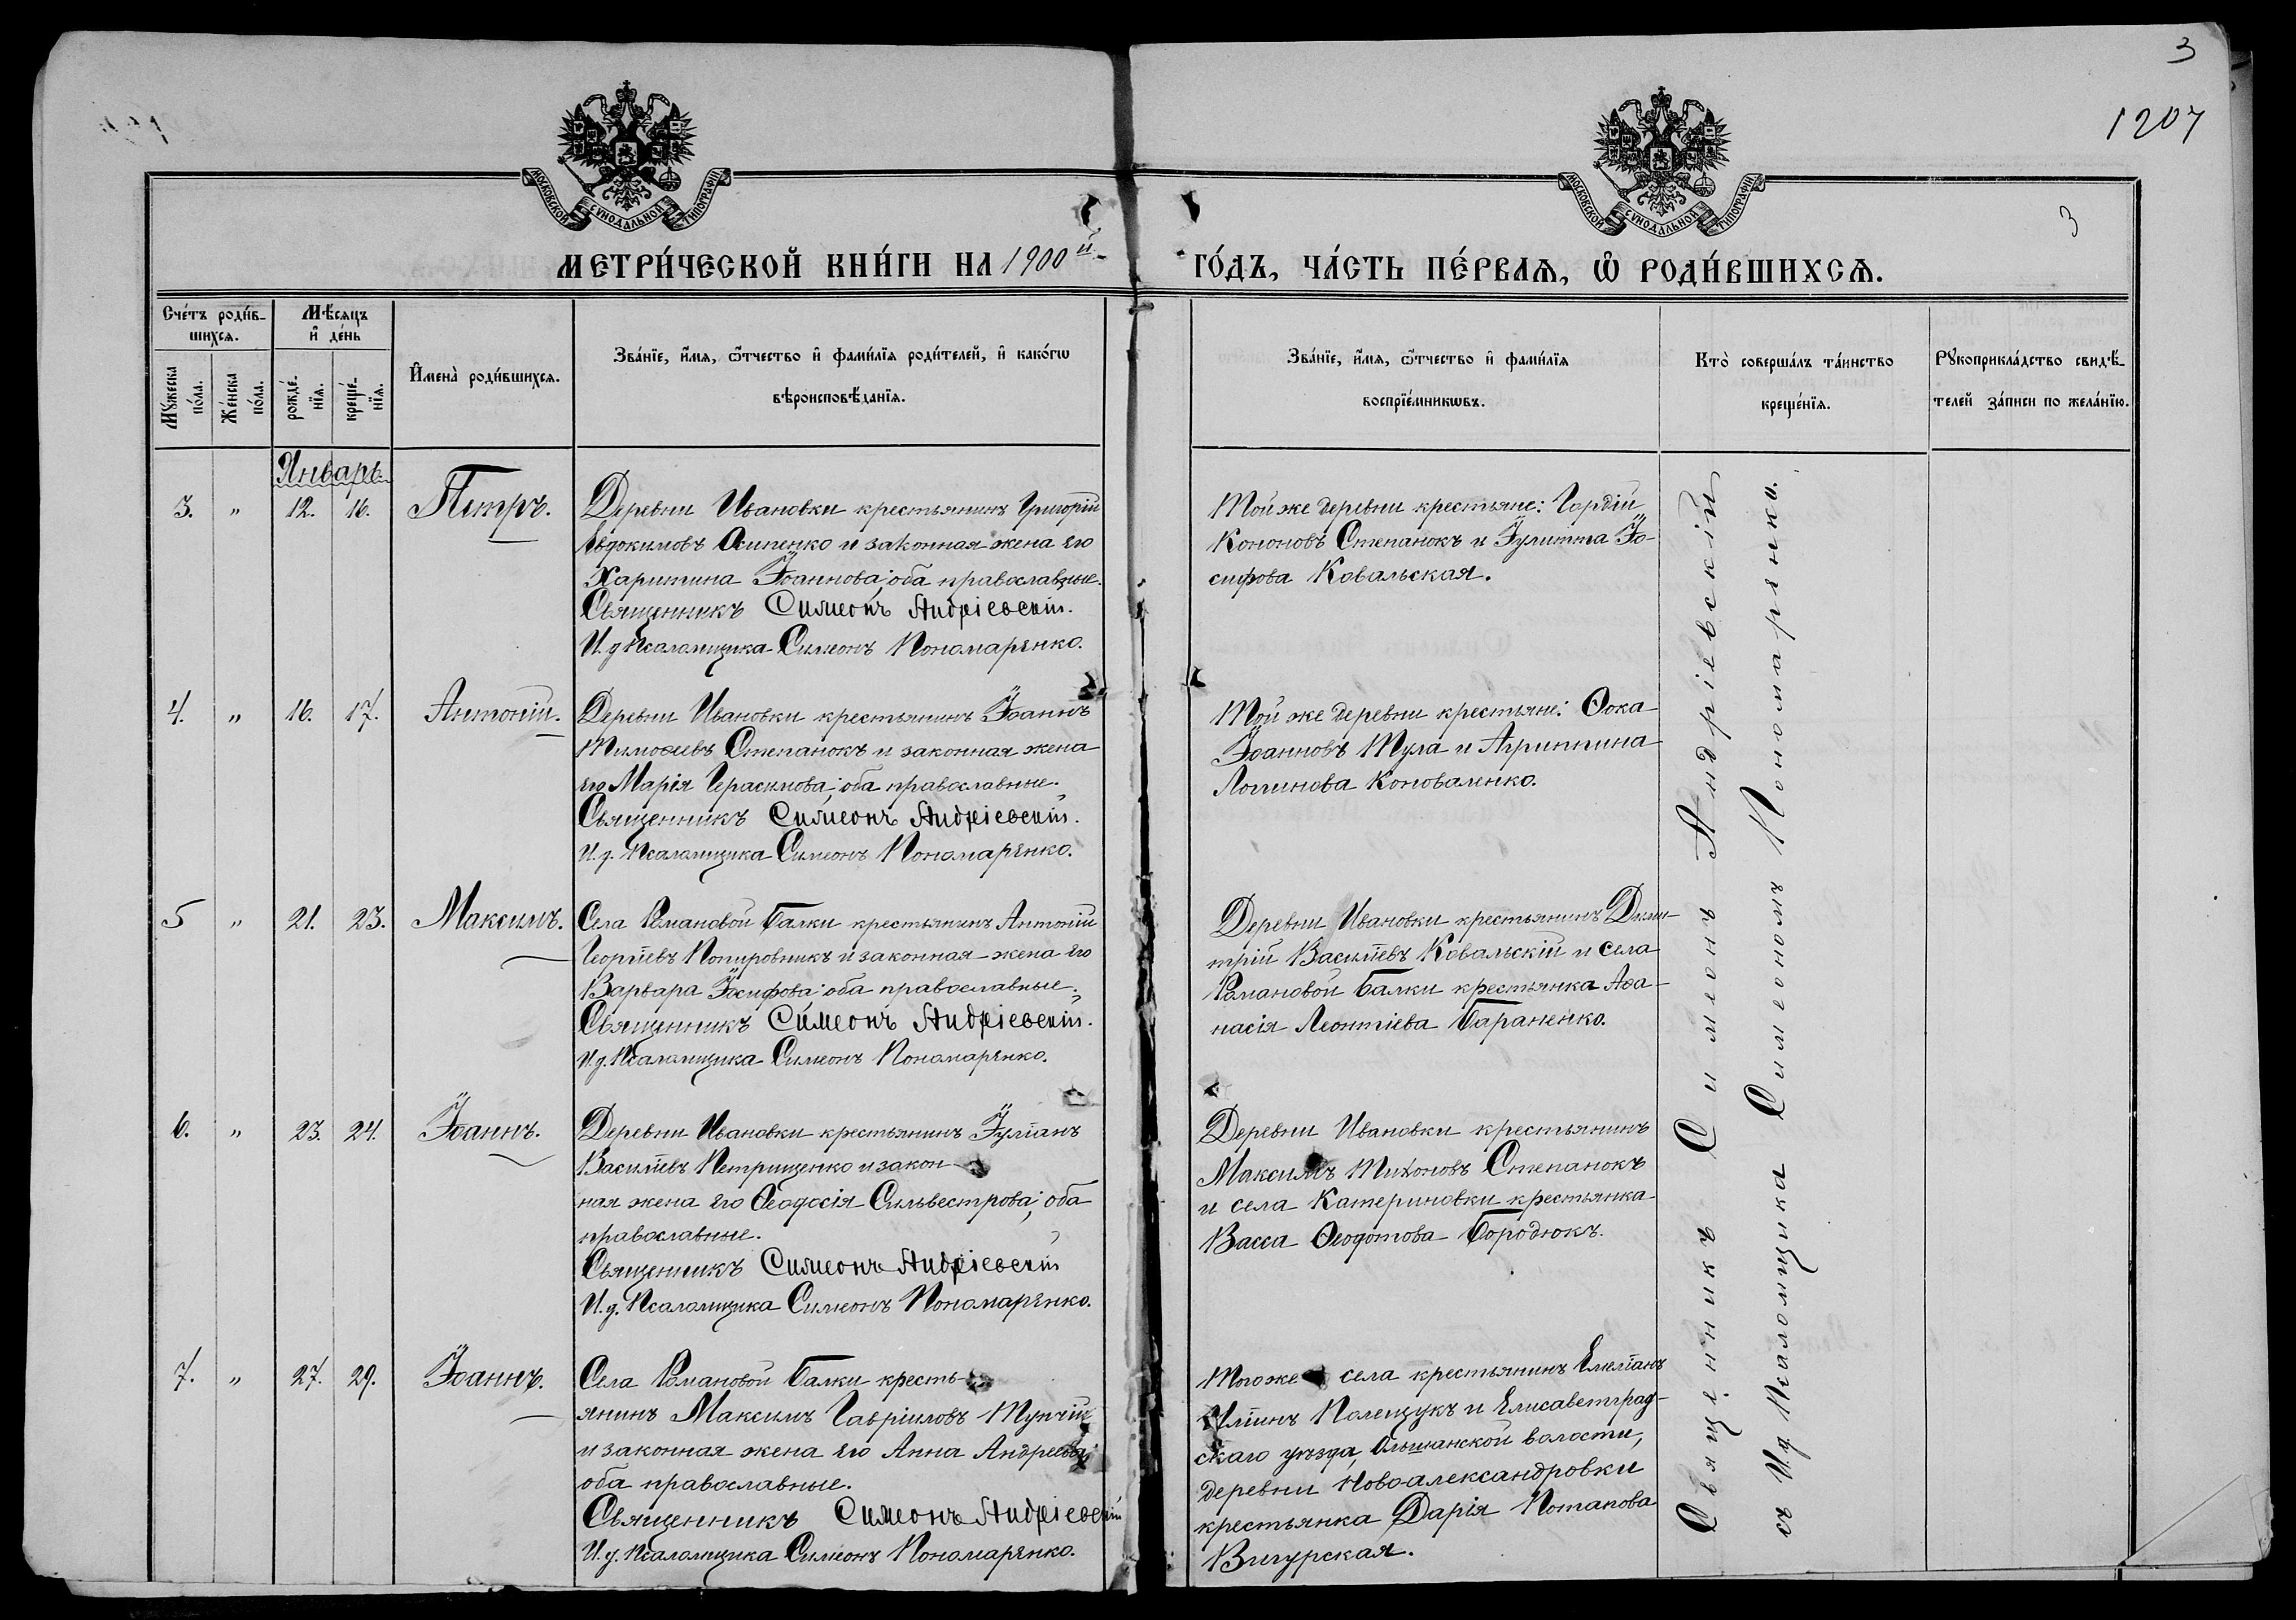 3
1207
3
МОСКОВСКОЙ СѴНОДАЛЬНОЙ ТИПОГРАФІИ
МОСКОВСКОЙ СѴНОДАЛЬНОЙ ТИПОГРАФІИ
МЕТРИ́ЧЕСКОЙ КНИ́ГИ НА 1900й
ГО́ДЪ, ЧА́СТЬ ПЕ́РВАѦ, Ѡ҆ РОДИ́ВШИХСѦ.
Сче́тъ роди́в-
шихсѧ.
Мѣ́сѧцъ
и҆ де́нь
Мꙋ́жеска по́ла.
Же́нска по́ла.
рожде́-нїѧ.
креще́-нїѧ.
И҆мена̀ роди́вшихсѧ.
Зва́нїе, и҆́мѧ, ѻ҆́тчество и҆ фами́лїѧ роди́телей, и҆ како́гѡ
вѣроисповѣ́данїѧ.
Зва́нїе, и҆́мѧ, ѻ҆́тчество и҆ фами́лїѧ
воспрїе́мникѡвъ.
Кто̀ соверша́лъ та́инство
креще́нїѧ.
Рꙋкоприкла́дство свидѣ́-
телей за́писи по жела́нїю.
Январь
3. " 12. 16. Петръ.
Деревни Ивановки крестьянинъ Григорій
Евдокимовъ Осипенко и законная жена его
Харитина Іоаннова; оба православные.
Священникъ Симеонъ Андріевскій.
И. д. Псаломщика Симеонъ Пономаренко.
Той же деревни крестьяне: Гордій
Кононовъ Степанокъ и Іулитта Іо-
сифова Ковальская.
4. " 16. 17. Антоній.
Деревни Ивановки крестьянинъ Іоаннъ
Тимоѳеевъ Степанокъ и законная жена
его Марія Герасимова; оба православные.
Священникъ Симеонъ Андріевскій.
И. д. Псаломщика Симеонъ Пономаренко.
Той же деревни крестьяне: Ѳока
Іоанновъ Тула и Агриппина
Логинова Коноваленко.
5 " 21. 23. Максимъ.
Села Романовой Балки крестьянинъ Антоній
Георгіевъ Попировникъ и законная жена его
Варвара Іосифова; оба православные.
Священникъ Симеонъ Андріевскій.
И. д. Псаломщика Симеонъ Пономаренко.
Деревни Ивановки крестьянинъ Дими-
трій Василіевъ Ковальскій и села
Романовой Балки крестьянка Аѳа-
насія Леонтіева Бараненко.
6. " 23. 24. Іоаннъ.
Деревни Ивановки крестьянинъ Іуліанъ
Василіевъ Петрищенко и закон-
ная жена его Ѳеодосія Сильвестрова; оба
православные.
Священникъ Симеонъ Андріевскій
И. д. Псаломщика Симеонъ Пономаренко.
Деревни Ивановки крестьянинъ
Максимъ Тихоновъ Степанокъ
и села Катериновки крестьянка
Васса Ѳеодотова Бородюкъ.
7. " 27. 29. Іоаннъ.
Села Романовой Балки кресть-
янинъ Максимъ Гавріиловъ Тупчій
и законная жена его Анна Андреева;
оба православные.
Священникъ Симеонъ Андріевскій
И. д. Псаломщика Симеонъ Пономаренко.
Того же села крестьянинъ Емеліанъ
Иліинъ Полещукъ и Елисаветград-
скаго уѣзда, Ольшанской волости,
деревни Ново-александровки
крестьянка Дарія Потапова
Вигурская.
Священникъ Симеонъ Андріевскій
съ И. д. Псаломщика Симеономъ Пономаренко.